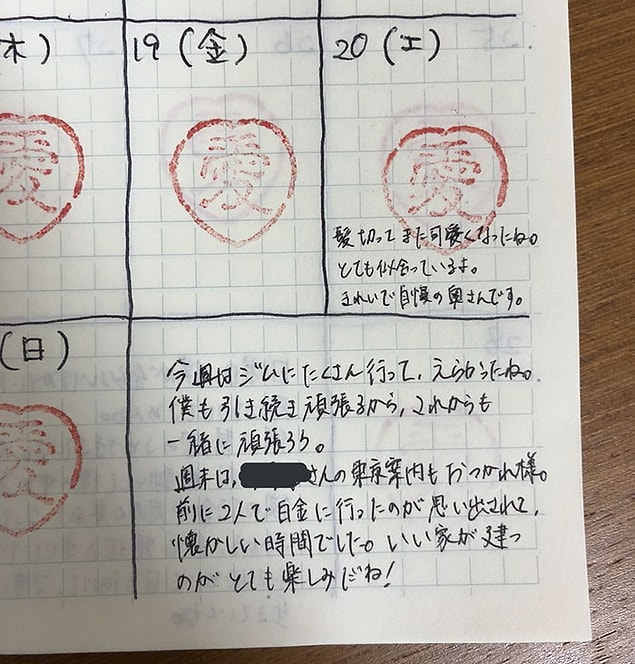 木)
19 (金)
20 (土)
愛
愛
愛
髪切ってまた可愛くなったね。
とても似合っているよ。
きれいで自慢の奥さんです。
(日)
愛
今週はジムにたくさん行って、えらかったね。
僕も引き続き頑張るから、これからも
一緒に頑張ろう。
週末は、さんの東京案内もおつかれ様。
前に2人で白金に行ったのが思い出されて、
懐かしい時間でした。いい家が建つ
のがとても楽しみだね!